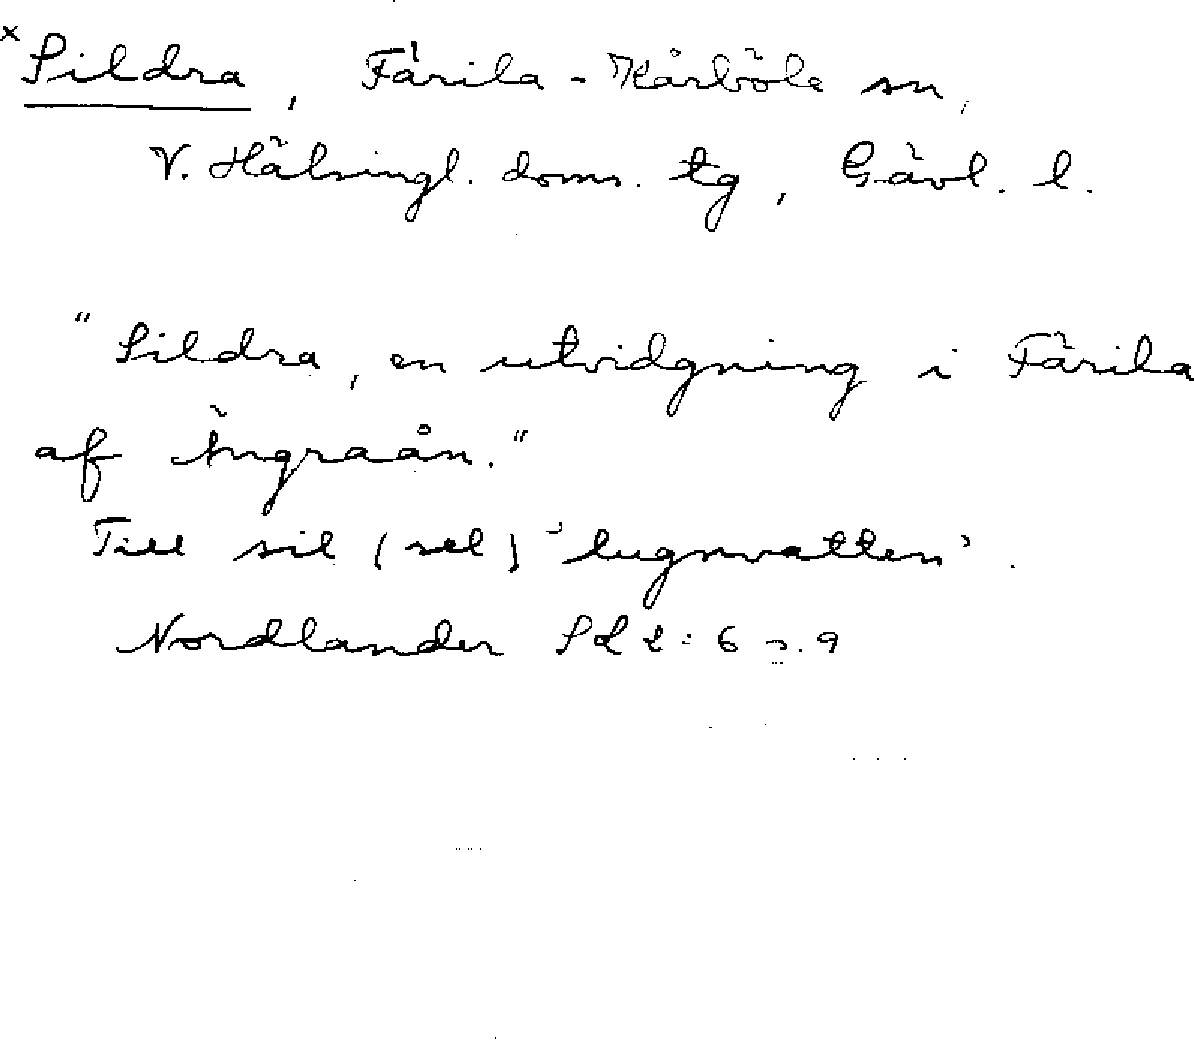 x Sildra, Färila-Kårböle sn,
V. Hälsingl. doms. tg, Gävl. l.
"Sildra, en utvidgning i Färila
af Ängraån."
Till sil (sel) 'lugnvatten'.
Nordlander SL 2:6 s. 9